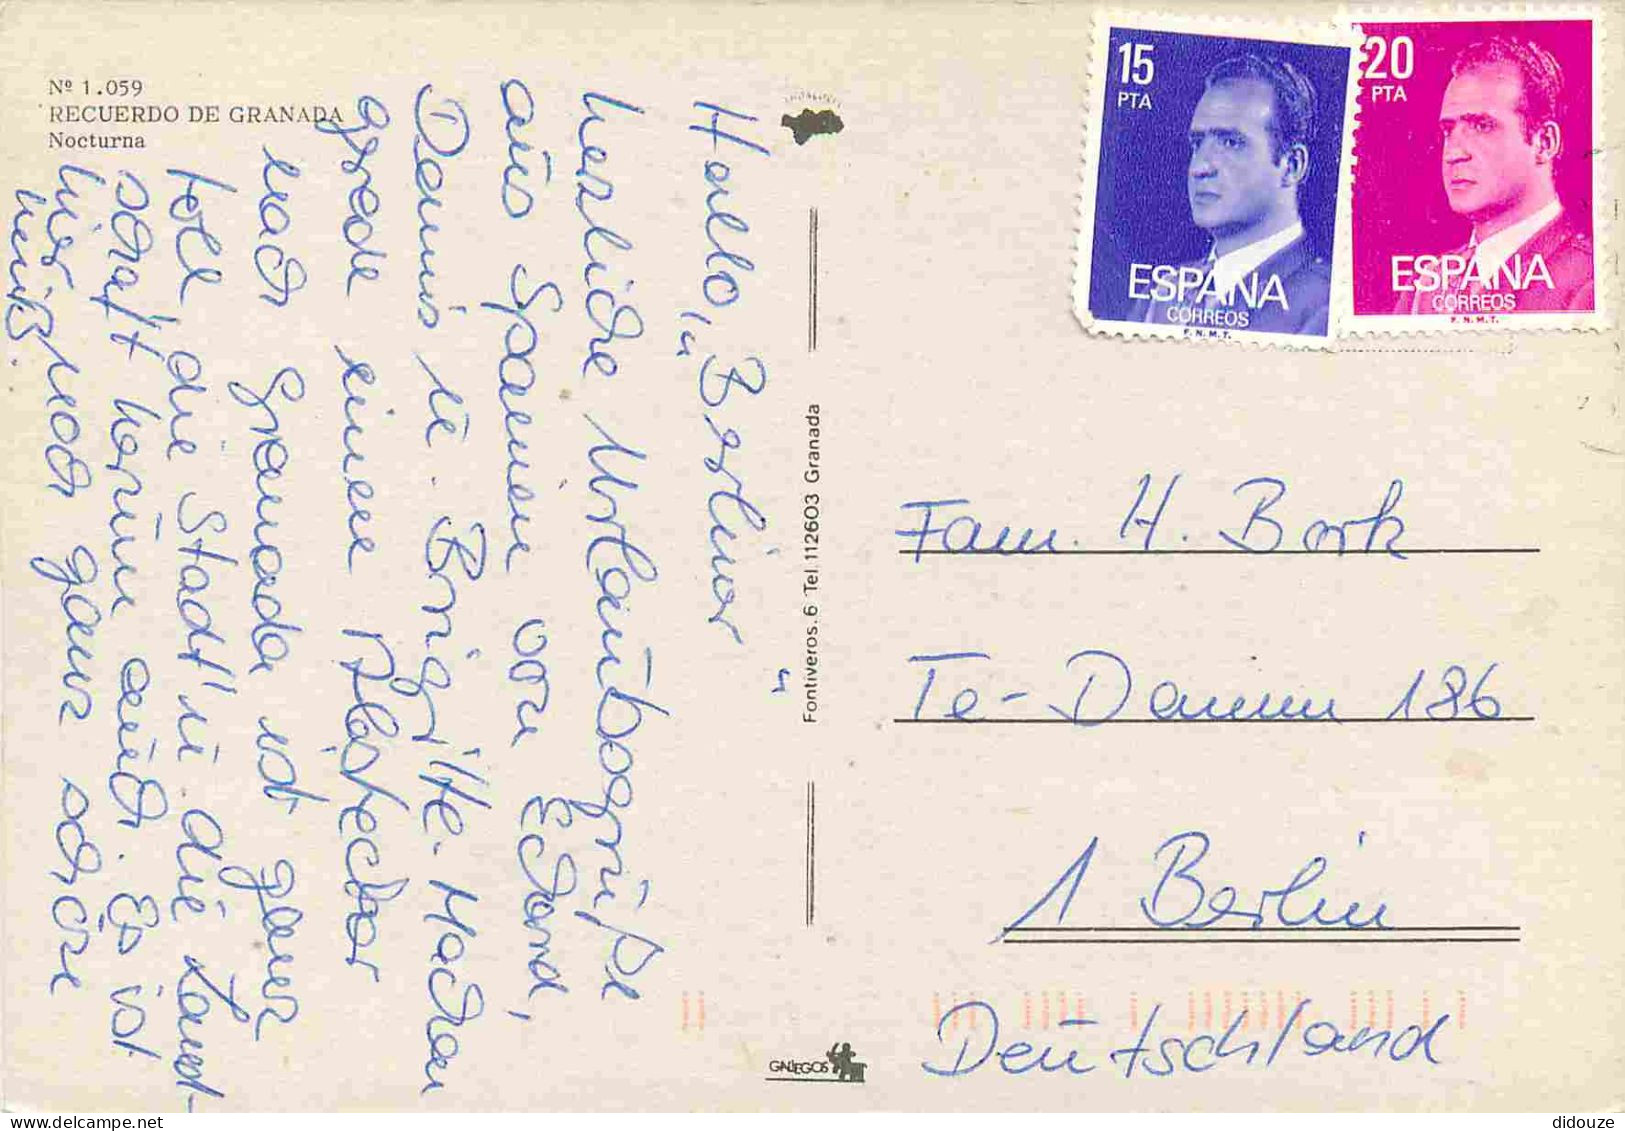 Nº 1.059
RECUERDO DE GRANADA
Nocturna
Hallo, „Berliner“
herzliche Urlaubsgrüße
aus Spanien von Eckard,
Dennis u. Brigitte. Machen
grade einen Abstecher
nach Granada ist ganz
toll die Stadt u. die Land-
schaft herum auch. Es ist
hier noch ganz schön
heiß.
Fontiveros. 6 Tel. 112603 Granada
GALLEGOS
15
PTA
ESPAÑA
CORREOS
F.N.M.T.
20
PTA
ESPAÑA
CORREOS
F.N.M.T.
Fam. H. Bork
Te-Damm 186
1 Berlin
Deutschland
didouze